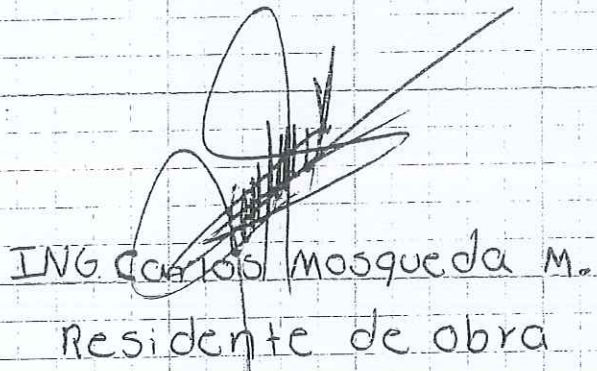 ING. Carlos Mosqueda M.
Residente de obra